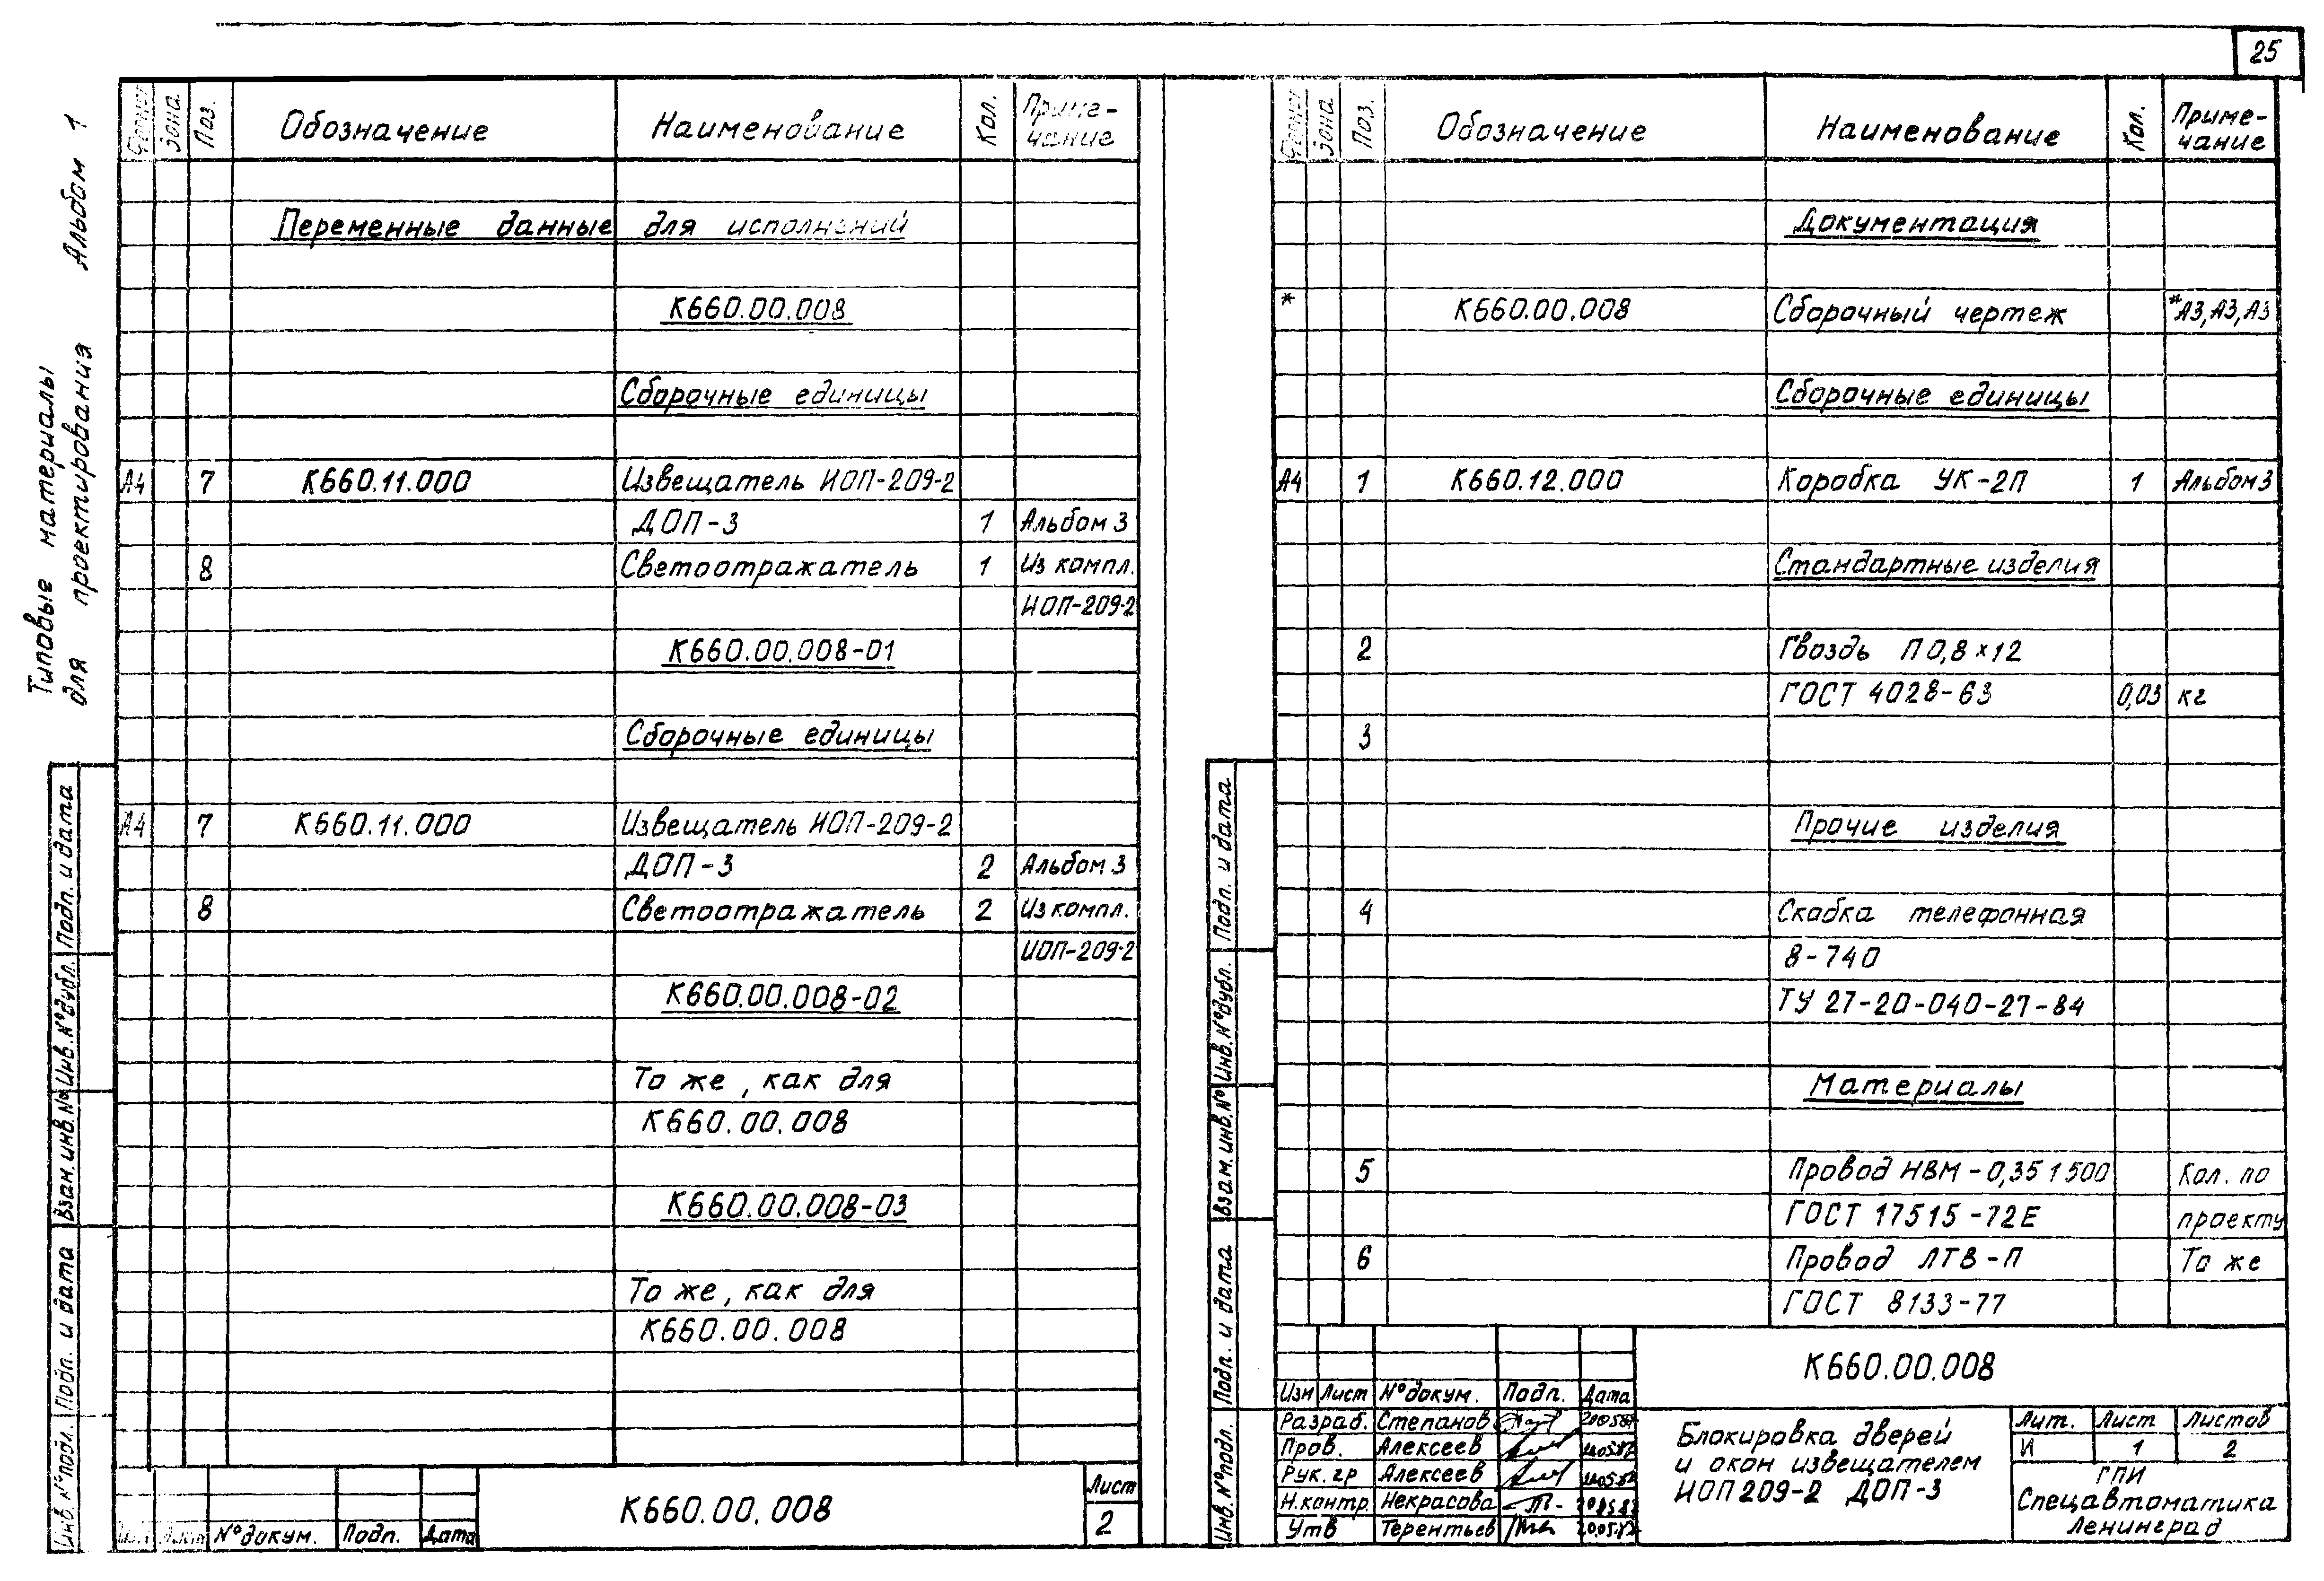 25
Типовые материалы
для проектирования Альбом 1
Зона
Поз.
Обозначение
Наименование
Кол.
Приме-
чание
Переменные данные для исполнений
К660.00.008
Сборочные единицы
А4 7 К660.11.000 Извещатель ИОП-209-2
ДОП-3 1 Альбом 3
8 Светоотражатель 1 Из компл.
ИОП-209-2
К660.00.008-01
Сборочные единицы
А4 7 К660.11.000 Извещатель ИОП-209-2
ДОП-3 2 Альбом 3
8 Светоотражатель 2 Из компл.
ИОП-209-2
К660.00.008-02
То же, как для
К660.00.008
К660.00.008-03
То же, как для
К660.00.008
Инв. № подл. Подп. и дата Взам. инв. № Инв. № дубл. Подп. и дата
Изм Лист № докум. Подп. Дата
К660.00.008
Лист
2
Зона
Поз.
Обозначение
Наименование
Кол.
Приме-
чание
Документация
* К660.00.008 Сборочный чертеж *А3,А3,А3
Сборочные единицы
А4 1 К660.12.000 Коробка УК-2П 1 Альбом 3
Стандартные изделия
2 Гвоздь П 0,8×12
ГОСТ 4028-63 0,03 кг
3
Прочие изделия
4 Скобка телефонная
8-740
ТУ 27-20-040-27-84
Материалы
5 Провод НВМ-0,35 1 500 Кол. по
ГОСТ 17515-72Е проекту
6 Провод ЛТВ-П То же
ГОСТ 8133-77
Инв. № подл. Подп. и дата Взам. инв. № Инв. № дубл. Подп. и дата
К660.00.008
Изм Лист № докум. Подп. Дата
Разраб. Степанов
Пров. Алексеев
Рук. гр Алексеев
Н.контр. Некрасова
Утв Терентьев
Блокировка дверей
и окон извещателем
ИОП 209-2 ДОП-3
Лит. Лист Листов
И 1 2
ГПИ
Спецавтоматика
Ленинград